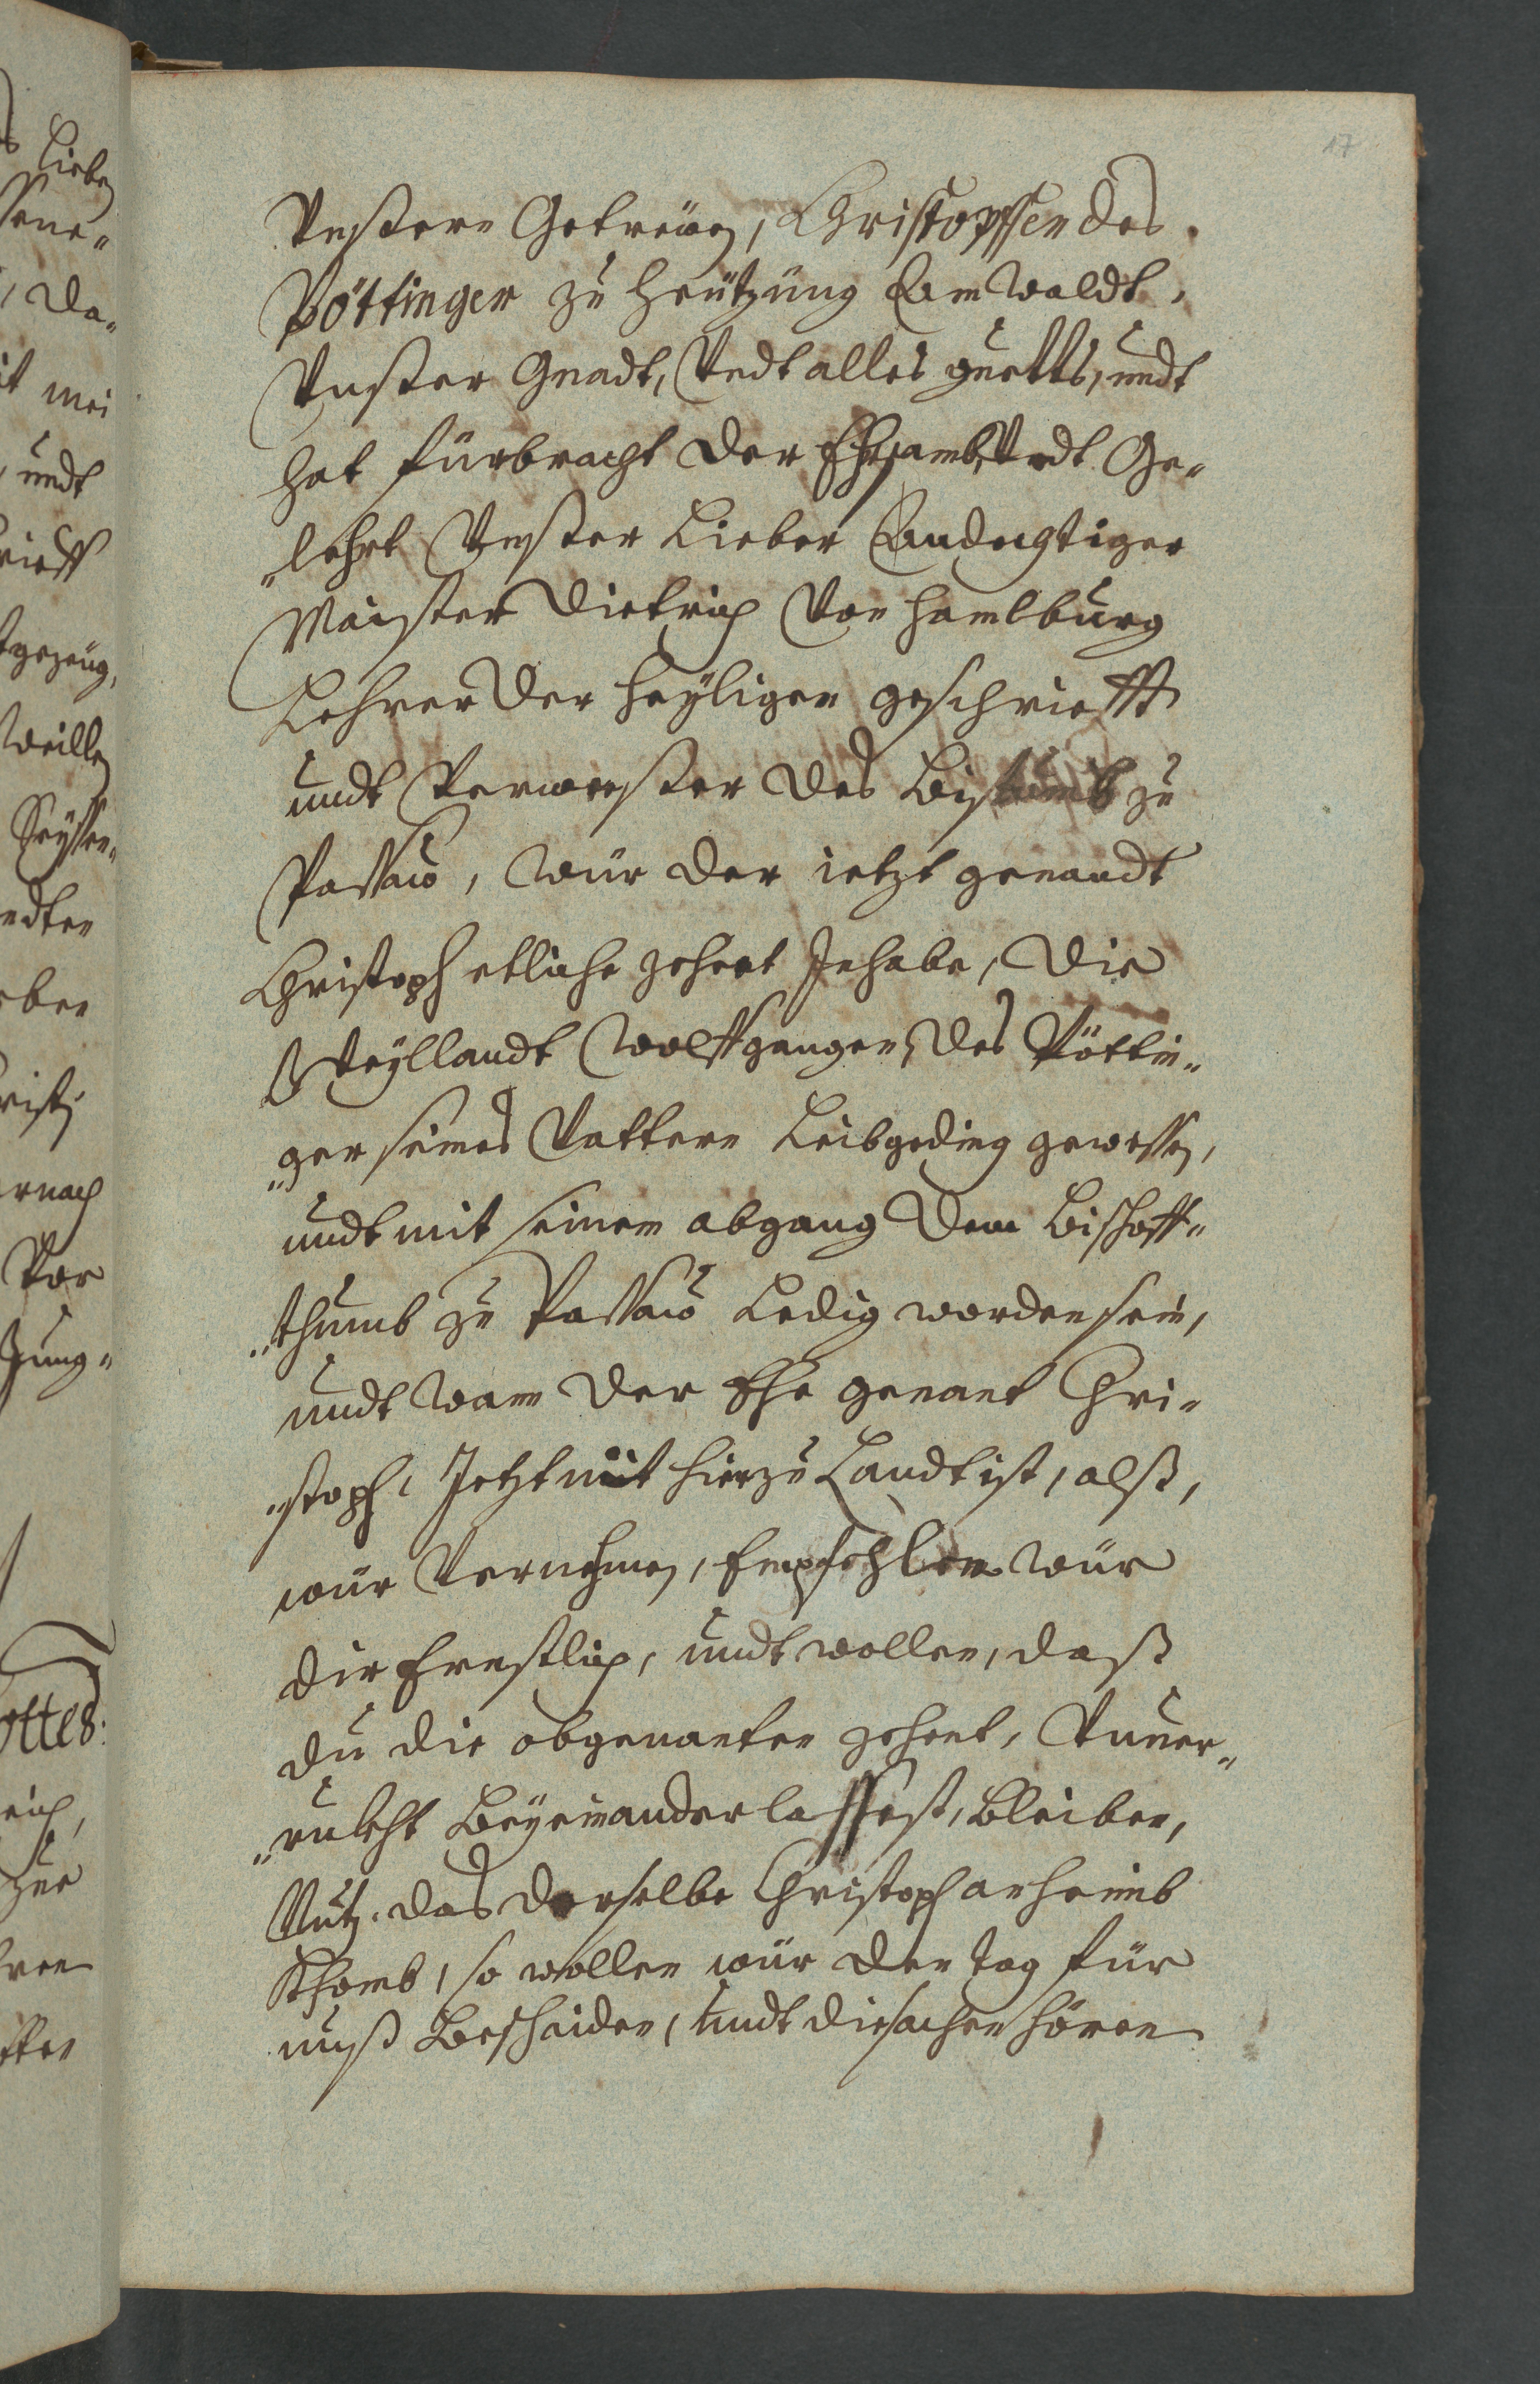 17
Unßern Getreüen, Christopffen des
Pöttinger zu Heützüng am Waldt,
Unßer Gnadt, Undt alles guetts, undt
hat fürbracht der Ehrsamb, Undt Ge„
„lehrt Unßer Lieber Andechtiger
Maister Dietrich Von Hamlburg
Lehrer der Heyligen geschriefft
undt Verweeßer des Bistumb zu
Passaw, wür der ietzt genandt
Christoph etliche zehent Inhabe, die
Weyllandt Wolffgangen des Pöttin„
„ger seines Vattern Leibgeding gewessen,
undt mit seinem abgang dem Bischoff„
„thumb zu Passaw Ledig worden sein,
undt wann der Ehe genant Chri„
„stoph, Jetzt nit hier zu Landt ist, alß,
wür Vernehmen, Empfehlen wür
dir Ernstlich, undt wollen, daß
du die obgenanten zehent, Unver„
„rukht Beyeinander lassest, Bleiben,
Untz das derselbe Christoph anheimb
Khomb, so wollen wür den tag für
unß Beschaiden, undt die sachen hören